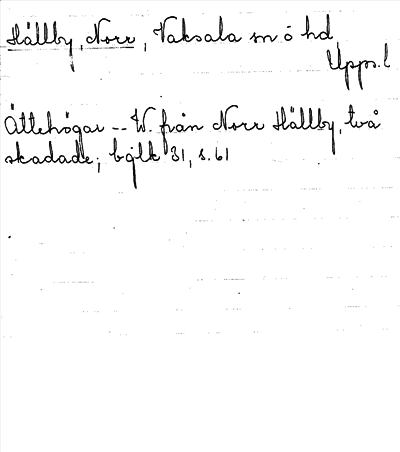 Hällby, Norr, Vaksala sn o hd
Upps. l
Ättehögar -- W. från Norr Hällby, två
skadade; bglk 31, s. 61